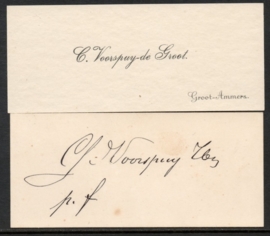 C. Voorspuy-de Groot.
Groot-Ammers.
G. Voorspuy Hz
p. f